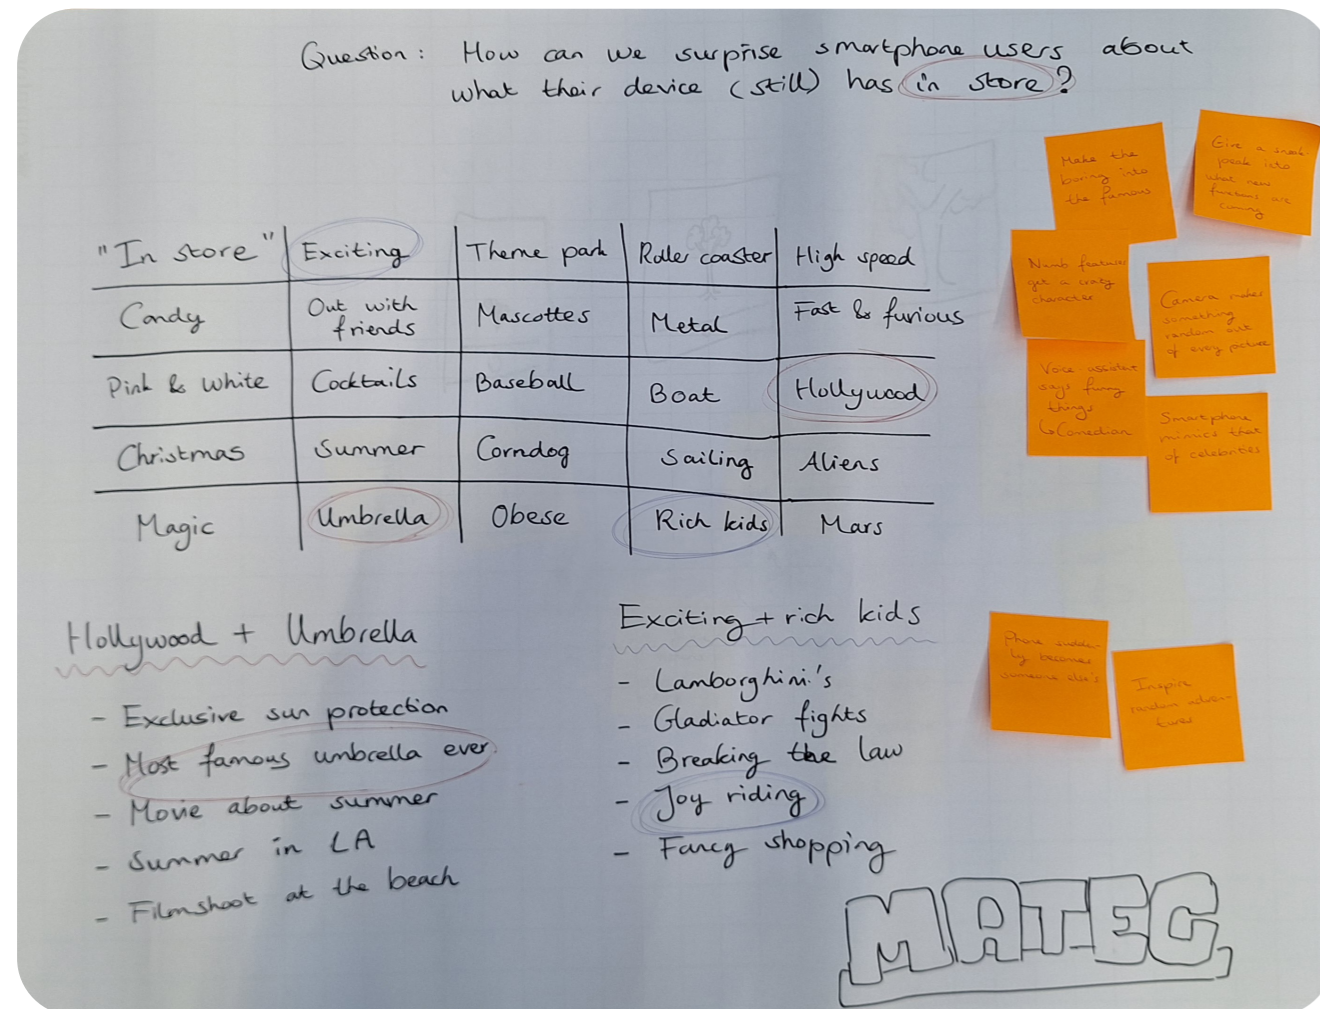 Question: How can we surprise smartphone users about
what their device (still) has in store?
"In store" Exciting Theme park Roller coaster High speed
Candy Out with friends Mascottes Metal Fast & furious
Pink & White Cocktails Baseball Boat Hollywood
Christmas Summer Corndog Sailing Aliens
Magic Umbrella Obese Rich kids Mars
Make the
boring into
the famous
Give a sneak
peak into
what new
functions are
coming
Numb features
get a crazy
character
Camera makes
something
random out
of every picture
Voice assistant
says funny
things
↳Comedian
Smartphone
mimics that
of celebrities
Hollywood + Umbrella
- Exclusive sun protection
- Most famous umbrella ever
- Movie about summer
- Summer in LA
- Filmshoot at the beach
Exciting + rich kids
- Lamborghini's
- Gladiator fights
- Breaking the law
- Joy riding
- Fancy shopping
Phone sudden-
ly becomes
someone else's
Inspire
random adven-
tures
MATEC